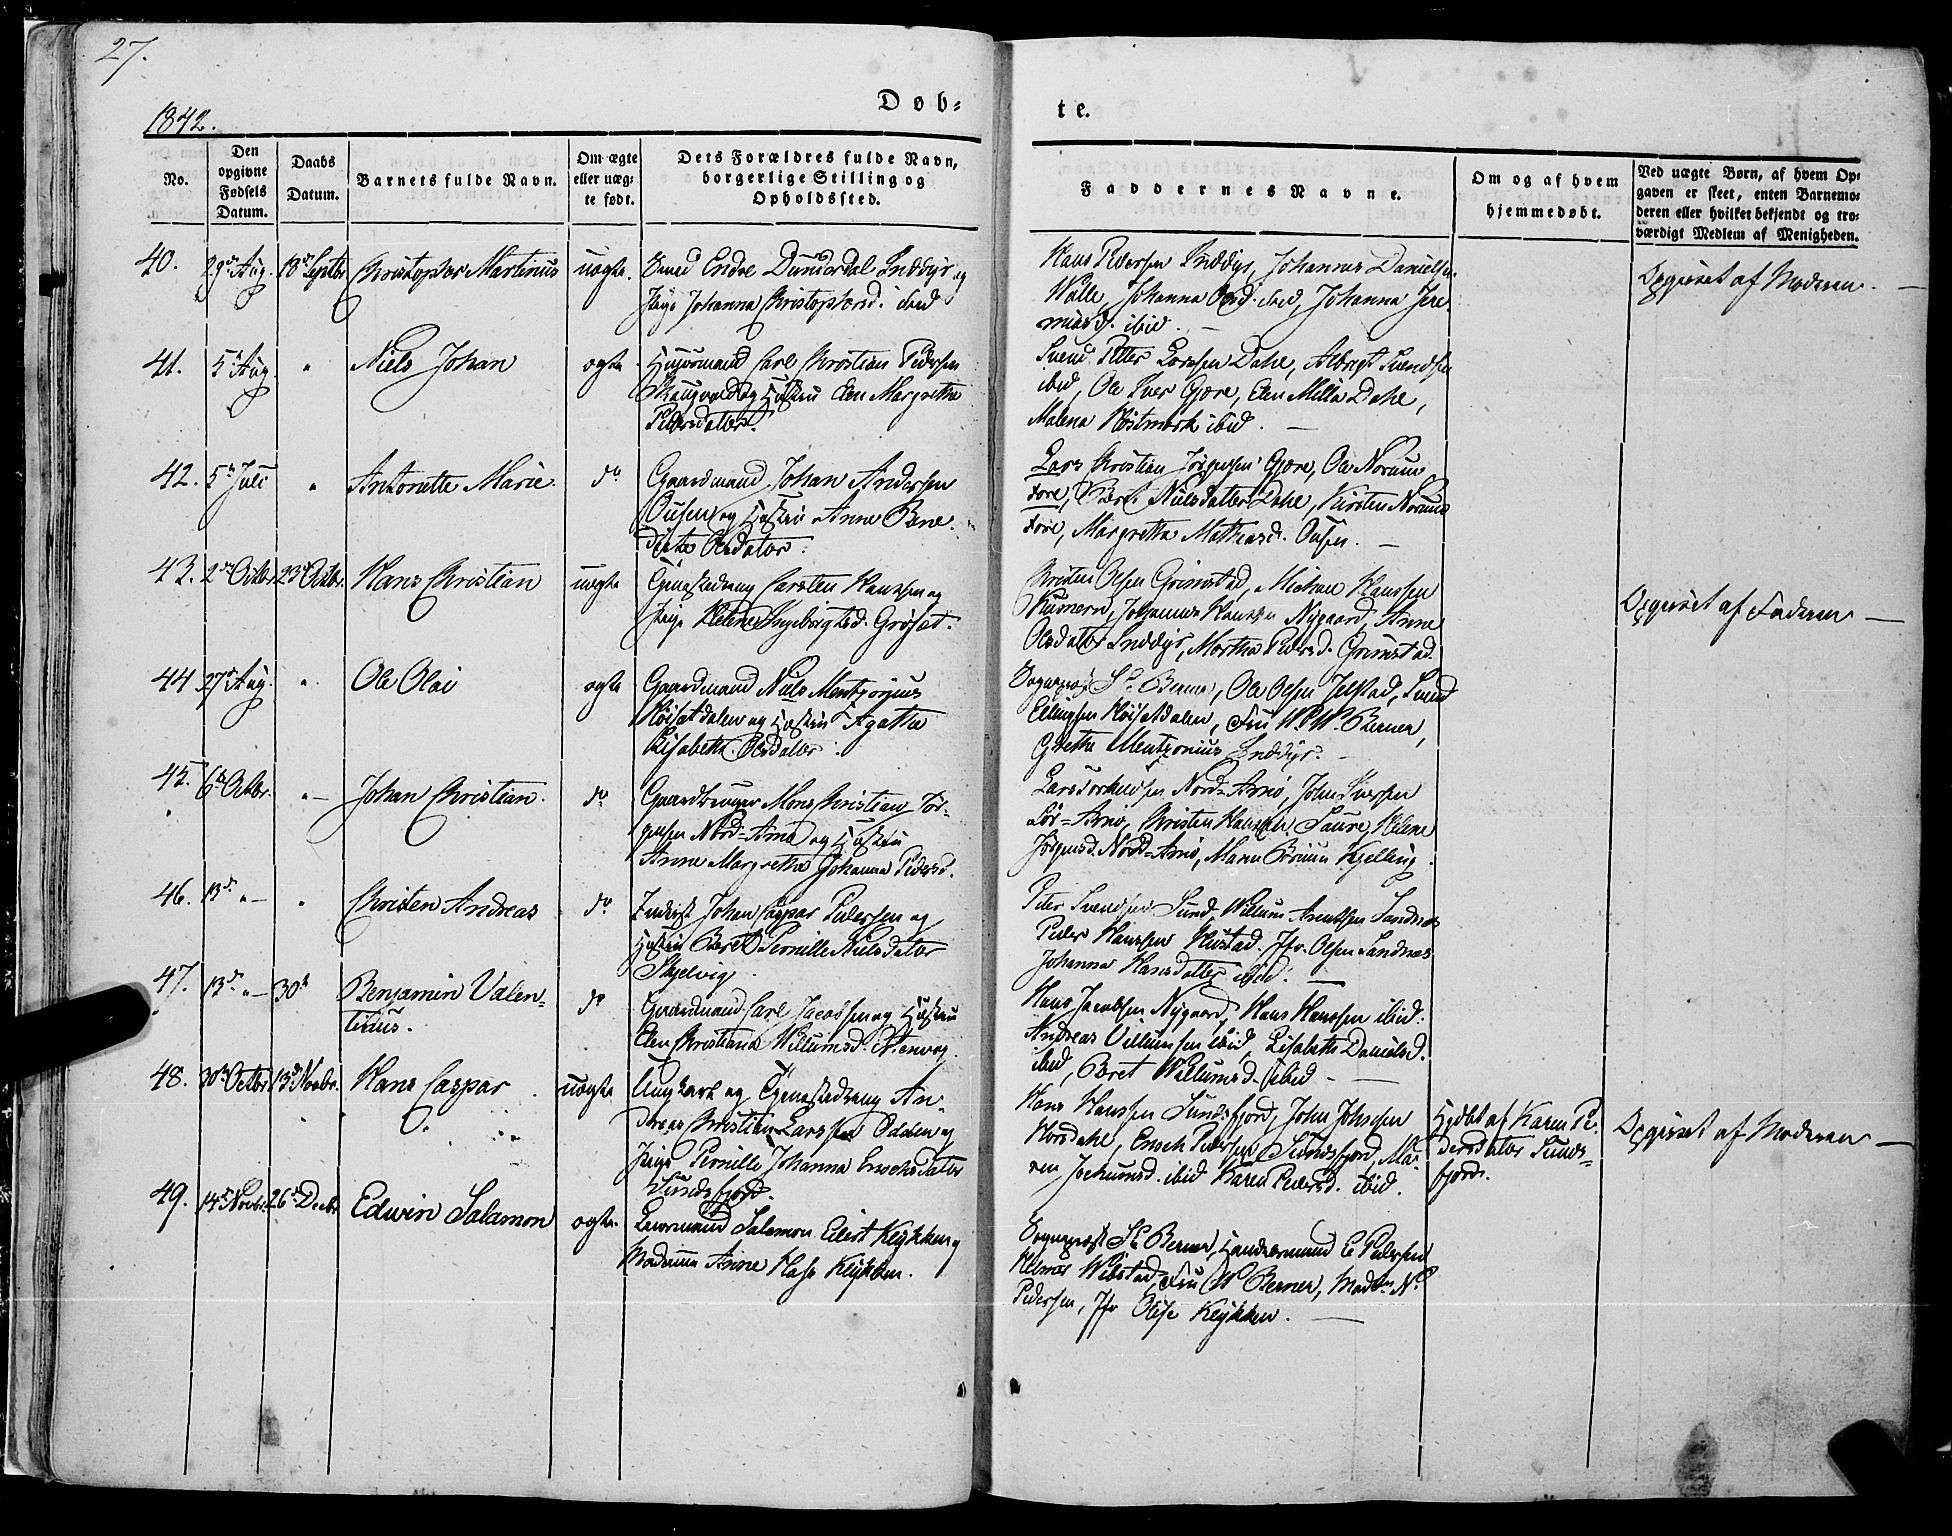 27.
1842.
Døb-
te.
No.
Den opgivne Fødsels Datum.
Daabs Datum.
Barnets fulde Navn.
Om ægte eller uægte født.
Dets Forældres fulde Navn, borgerlige Stilling og Opholdssted.
Faddernes Navne.
Om og af hvem hjemmedøbt.
Ved uægte Børn, af hvem Opgaven er skeet, enten Barnemoderen eller hvilket bekjendt og troværdigt Medlem af Menigheden.
40. 29de Aug. 18de Septbr. Christopher Martinus uægte.
Johanna Christophersd. ibid
Hans Pedersen Inddyr, Johannes Danielsen
Johanna ibid, Johanna Jere-
miasd. ibid.
Opgivet af Moderen.
41. 5te Aug. " Niels Johan ægte
Huusmand Carl Christian Pedersen
og Hustru Elen Margrethe
Pedersdatter.
Svend Petter Larssen Dahl, Albrigt Svendsen
ibid, Ole Iver Gjøre, Elen Milla Dahl,
Malena ibid.
42. 5te Juli " Antonette Marie do
Gaardmand Johan Andersen
og Hustru Anne Bene-
dicte Olsdatter.
Lars Christian Jørgensen Gjøre, Ole
Beret Nielsdatter Dahl, Kirsten
Margrethe Mathiasd.
43. 2den Octbr. 23de Octbr. Hans Christian uægte
Tjenestedreng Carsten Hanssen og
Pige Helene Ingebrigtsd.
Christen Olsen Grimstad, Michael Hanssen
Johannes Hanssen Nygaard, Anne
Olsdatter Inddyr, Martha Pedersd. Grimstad.
Opgivet af Faderen
44 27de Aug. " Ole Olai ægte
Gaardmand Niels Mentzonius
Høisetdalen og Hustru Agatha
Elisabeth Olsdatter.
Sogneprest S. Berner, Ole Olsen Jelstad, Svend
Ellingsen Høisetdalen, Fru W. Berner,
Grethe Mentzonius Inddyr.
45. 6te Octbr. " Johan Christian. do
Gaardbruger Mons Christian Jør-
gensen Nord-Arnø og Hustru
Anne Margrethe Johanna Pedersd.
Lars Nord-Arnø, John Iversen
Sør-Arnø, Christen Hanssen Saure, Helene
Jørgensd. Nord-Arnø, Maren Kjelling.
46. 13de " " Christen Andreas do
Inderst Johan Caspar Pedersen og
Hustru Beret Pernille Nielsdatter
Skjelvig.
Peter Svendsen Sund, Willum Arentsen Sandnæs
Peder Hanssen Hustad. Jfr. Olsen Sandnæs
Johanna Hansdatter ibid.
47. 13de " 30te Benjamin Valen-
tinus. do
Gaardmand Carl Jacobsen og Hustru
Elen Christiana Willumsd.
Hans Jacobsen Nygaard, Hans Hanssen ibid.
Andreas Villumsen ibid, Elisabeth Danielsd.
ibid, Beret Willumsd. ibid
48. 30te Octbr. 13de Novbr. Hans Caspar uægte
Ungkarl og Tjenestedreng An-
dreas Christian Larssen Odden og
Pige Pernille Johanna Enochsdatter
Sundsfjord.
Hans Hanssen Sundsfjord, John Johnsen
Horsdahl, Enoch Pedersen Sundsfjord, Ma-
ren Jochumsd. ibid Karen Pedersd. ibid.
Hjdbt af Karen Pe-
dersdatter Sunds-
fjord.
Opgivet af Moderen
49. 14de Novbr. 26de Decbr. Edwin Salamon ægte
Salamon Eilert Klykken og
Madame Anne Klykken.
Sogneprest S. Berner, Handelsmand E. Pedersen
Fru W Berner, Mad.
Pedersen, Jfr Klykken.